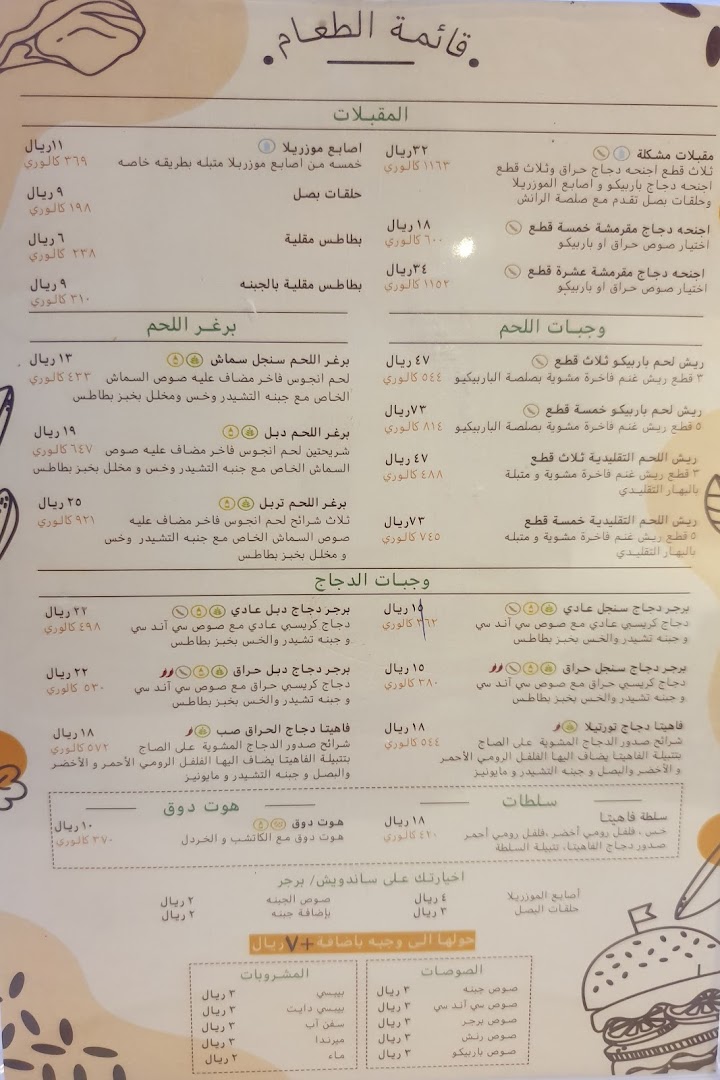 قائمة الطعام
المقبلات
مقبلات مشكلة ٣٢ريال
ثلاث قطع اجنحه دجاج حراق وثلاث قطع ١١٦٣ كالوري
اجنحه دجاج باربيكو و اصابع الموزريلا
وحلقات بصل تقدم مع صلصة الرانش
اجنحه دجاج مقرمشة خمسة قطع ١٨ ريال
اختيار صوص حراق او باربيكو ٦٠٠ كالوري
اجنحه دجاج مقرمشة عشرة قطع ٣٤ريال
اختيار صوص حراق او باربيكو ١١٥٢ كالوري
اصابع موزريلا ١١ريال
خمسه من اصابع موزريلا متبله بطريقه خاصه ٣٦٩ كالوري
حلقات بصل ٩ ريال
١٩٨ كالوري
بطاطس مقلية ٦ ريال
٢٣٨ كالوري
بطاطس مقلية بالجبنه ٩ ريال
٣١٠ كالوري
وجبات اللحم
ريش لحم باربيكو ثلاث قطع ٤٧ ريال
٣ قطع ريش غنم فاخرة مشوية بصلصة الباربيكيو ٥٤٤ كالوري
ريش لحم باربيكو خمسة قطع ٧٣ريال
٥ قطع ريش غنم فاخرة مشوية بصلصة الباربيكيو ٨١٤ كالوري
ريش اللحم التقليدية ثلاث قطع ٤٧ ريال
٣ قطع ريش غنم فاخرة مشوية و متبلة ٤٨٨ كالوري
بالبهار التقليدي
ريش اللحم التقليدية خمسة قطع ٧٣ريال
٥ قطع ريش غنم فاخرة مشوية و متبله ٧٤٥ كالوري
بالبهار التقليدي
برغر اللحم
برغر اللحم سنجل سماش ١٣ ريال
لحم انجوس فاخر مضاف عليه صوص السماش ٤٣٣ كالوري
الخاص مع جبنه التشيدر وخس ومخلل بخبز بطاطس
برغر اللحم دبل ١٩ ريال
شريحتين لحم انجوس فاخر مضاف عليه صوص ٦٤٧ كالوري
السماش الخاص مع جنبه التشيدر وخس و مخلل بخبز بطاطس
برغر اللحم تربل ٢٥ ريال
ثلاث شرائح لحم انجوس فاخر مضاف عليه ٩٢١ كالوري
صوص السماش الخاص مع جنبه التشيدر وخس
و مخلل بخبز بطاطس
وجبات الدجاج
برجر دجاج سنجل عادي ١٥ ريال
دجاج كريسبي عادي مع صوص سي آند سي ٣٦٢ كالوري
و جبنه تشيدر والخس بخبز بطاطس
برجر دجاج سنجل حراق ١٥ ريال
دجاج كريسبي حراق مع صوص سي آند سي ٣٨٠ كالوري
و جبنه تشيدر والخس بخبز بطاطس
فاهيتا دجاج تورتيلا ١٨ ريال
شرائح صدور الدجاج المشوية على الصاج ٥٤٤ كالوري
بتتبيلة الفاهيتا يضاف اليها الفلفل الرومي الأحمر
و الأخضر والبصل و جبنه التشيدر و مايونيز
برجر دجاج دبل عادي ٢٢ ريال
دجاج كريسبي عادي مع صوص سي آند سي ٤٩٨ كالوري
و جبنه تشيدر والخس بخبز بطاطس
برجر دجاج دبل حراق ٢٢ ريال
دجاج كريسبي حراق مع صوص سي آند سي ٥٣٠ كالوري
و جبنه تشيدر والخس بخبز بطاطس
فاهيتا دجاج الحراق صب ١٨ ريال
شرائح صدور الدجاج المشوية على الصاج ٥٧٢ كالوري
بتتبيلة الفاهيتا يضاف اليها الفلفل الرومي الأحمر و الأخضر
والبصل و جبنه التشيدر و مايونيز
سلطات
سلطة فاهيتا ١٨ ريال
خس ، فلفل رومي أخضر ،فلفل رومي أحمر ٤٢٠ كالوري
صدور دجاج الفاهيتا، تتبيلة السلطة
هوت دوق
هوت دوق ١٠ ريال
هوت دوق مع الكاتشب و الخردل ٣٧٠ كالوري
اختيارتك على ساندويش/ برجر
أصابع الموزريلا ٤ ريال
حلقات البصل ٣ ريال
صوص الجبنه ٢ ريال
بإضافة جبنه ٢ ريال
حولها الى وجبه باضافة +٧ ريال
الصوصات
صوص جبنه ٣ ريال
صوص سي آند سي ٣ ريال
صوص برجر ٣ ريال
صوص رنش ٣ ريال
صوص باربيكو ٣ ريال
المشروبات
بيبسي ٣ ريال
بيبسي دايت ٣ ريال
سفن آب ٣ ريال
ميرندا ٣ ريال
ماء ٢ ريال